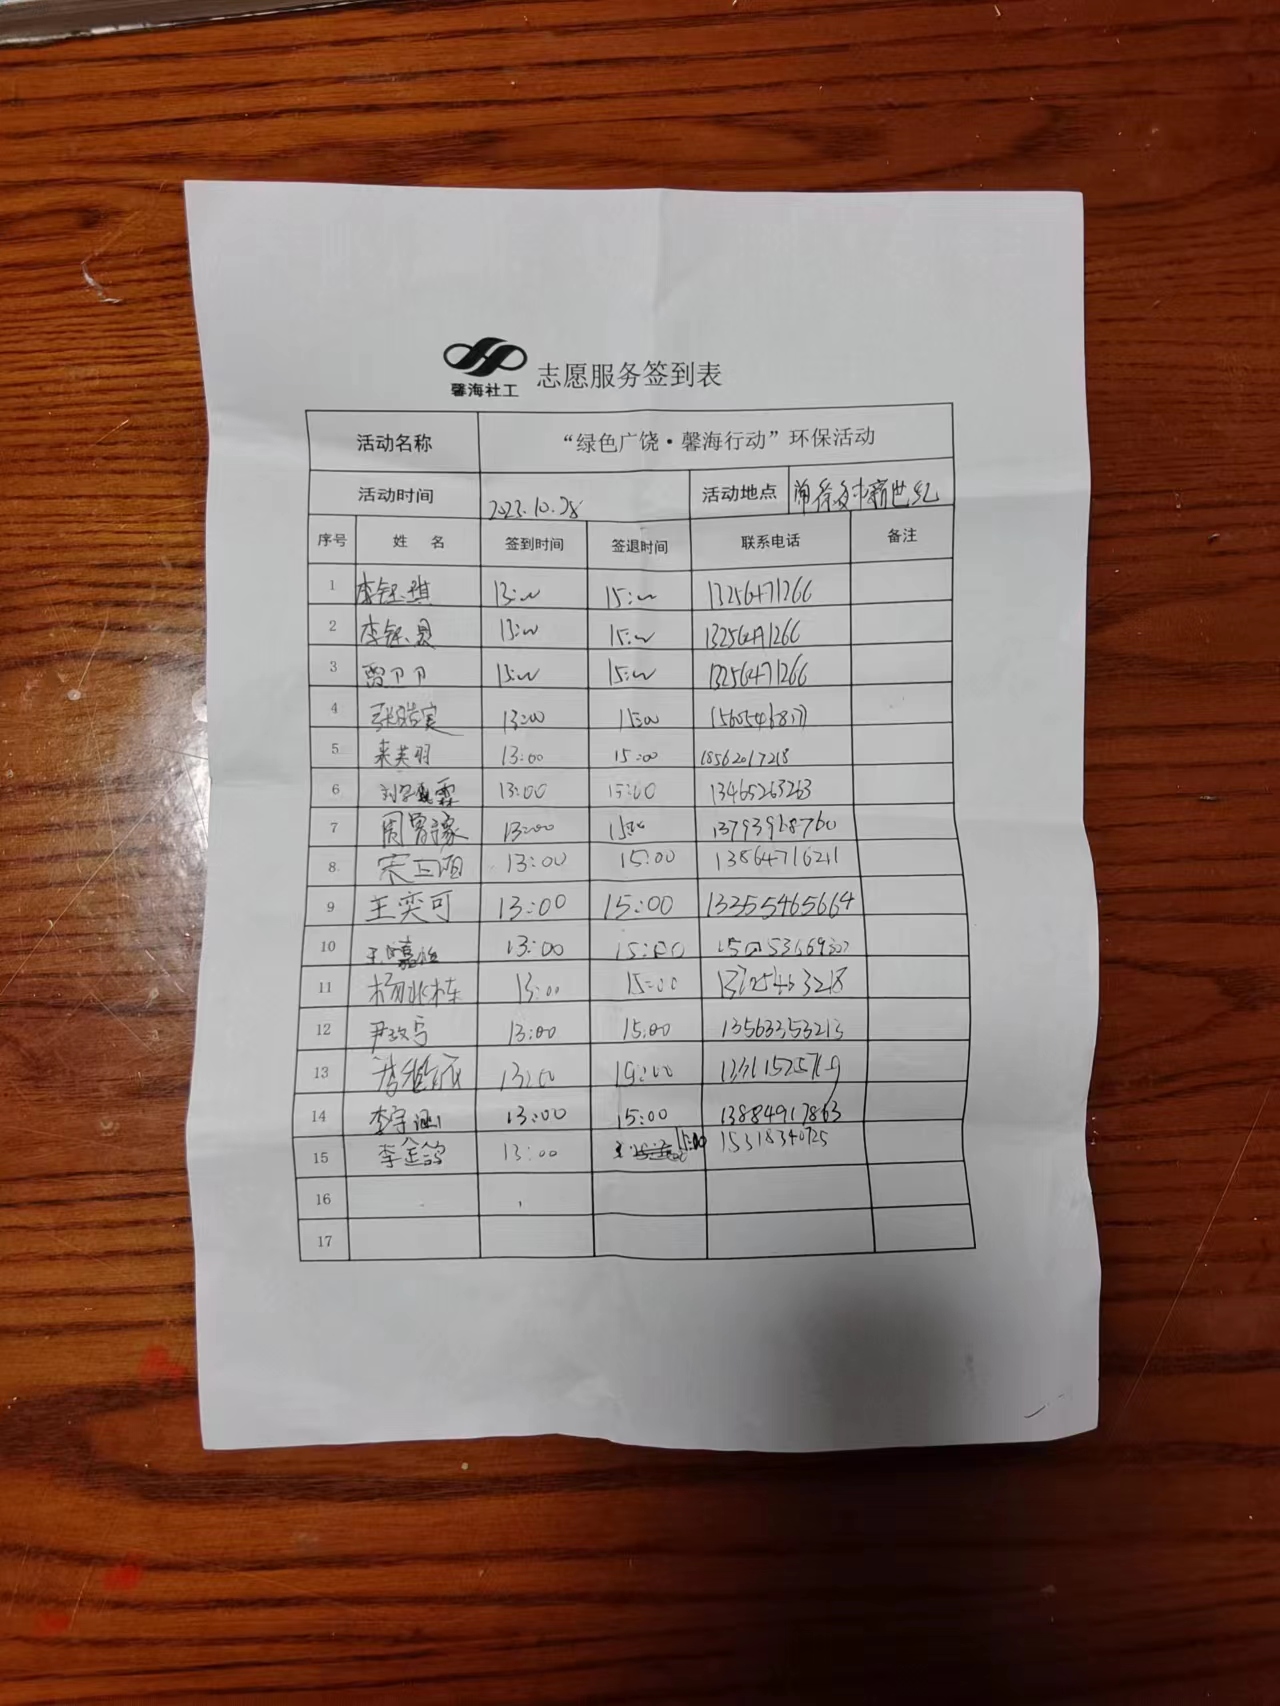 馨海社工 志愿服务签到表
活动名称 “绿色广饶·馨海行动”环保活动
活动时间 2023.10.28 活动地点 新世纪
序号 姓 名 签到时间 签退时间 联系电话 备注
1 李钰琪 13:00 15:00 13256471266
2 李钰 15:00 15:00 13256471266
3 15:00 15:00 13256471266
4 13:00 15:00
5 来芙羽 13:00 15:00 18562017218
6 13:00 15:00 13465263263
7 13:00 15:00 13793968760
8 13:00 15:00 13864716211
9 王奕可 13:00 15:00 13355465664
10 13:00 15:00
11 13:00 15:00
12 13:00 15:00 13563353213
13 13:00 15:00
14 李宇涵 13:00 15:00 13884917863
15 李金鸽 13:00 15:00 15318340725
16
17